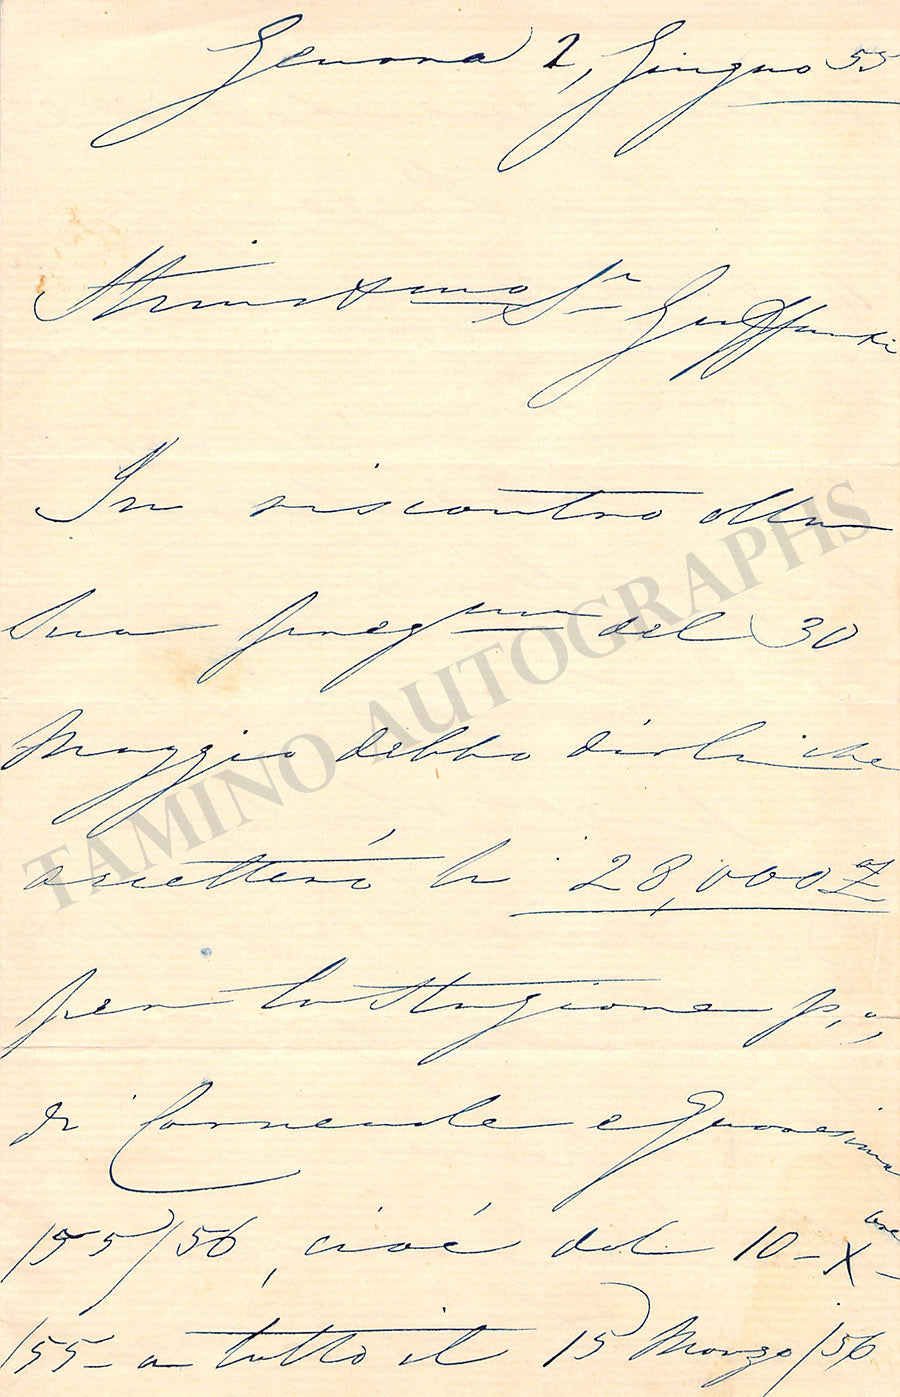 Genova 2, Giugno 55
Stimatismo Sr Guffanti
In riscontro alla
Sua pregma del 30
Maggio debbo dirle che
accetterò le 28,000 af
per la Stagione p.a,
di Carnevale e Quaresima
/55/56, cioè dal 10 - Xbre -
/55 - a tutto il 15 Marzo /56
TAMINO AUTOGRAPHS